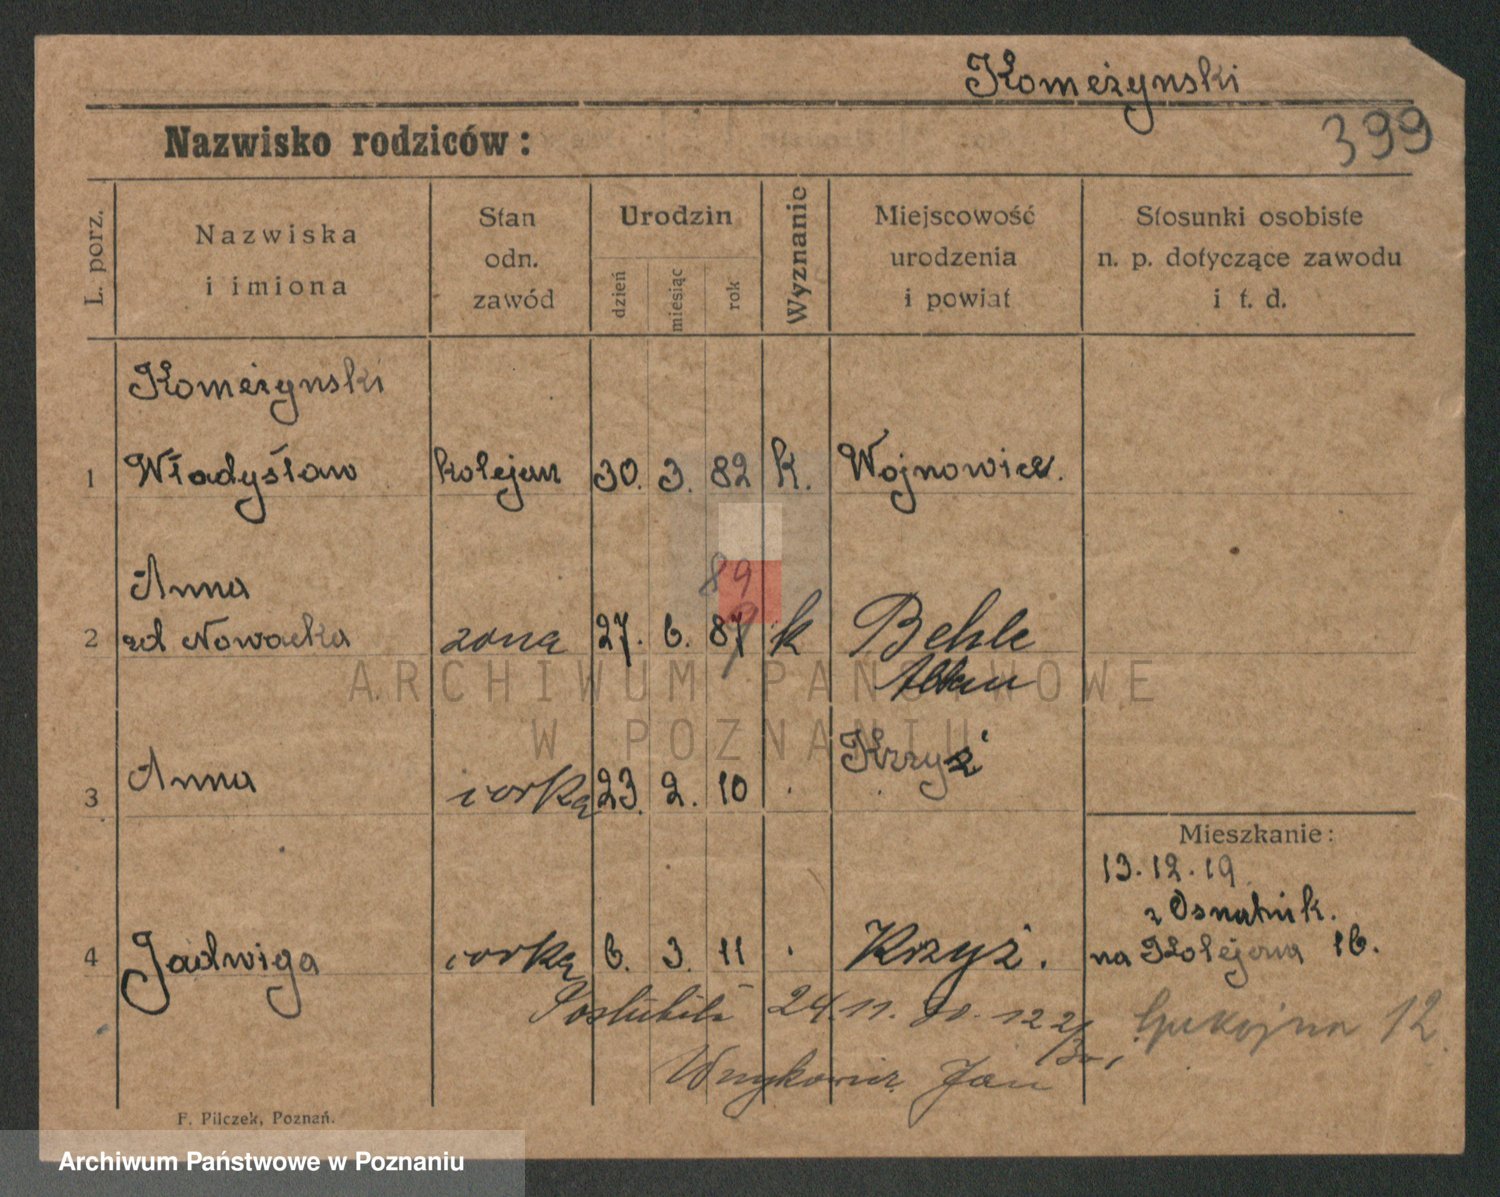 Komeżynski
399
Nazwisko rodziców:
L. porz.
Nazwiska
i imiona
Stan
odn.
zawód
Urodzin
dzień
miesiąc
rok
Wyznanie
Miejscowość
urodzenia
i powiat
Stosunki osobiste
n. p. dotyczące zawodu
i t. d.
Komeżynski
1 Władysław kolejarz 30. 3. 82 k.
89
Anna
2 zd Nowacka żona 27. 6. 87 k Behle
Krzyż
3 Anna córka 23. 2. 10 .
Mieszkanie:
13.12.19
z Osnatnik.
4 Jadwiga córka 6. 3. 11 . Krzyż. na Kolejowa 16.
24.11.30. 122/30,
Spokojna 12
Jan
F. Pilczek, Poznań.
ARCHIWUM PAŃSTWOWE
W POZNANIU
Archiwum Państwowe w Poznaniu